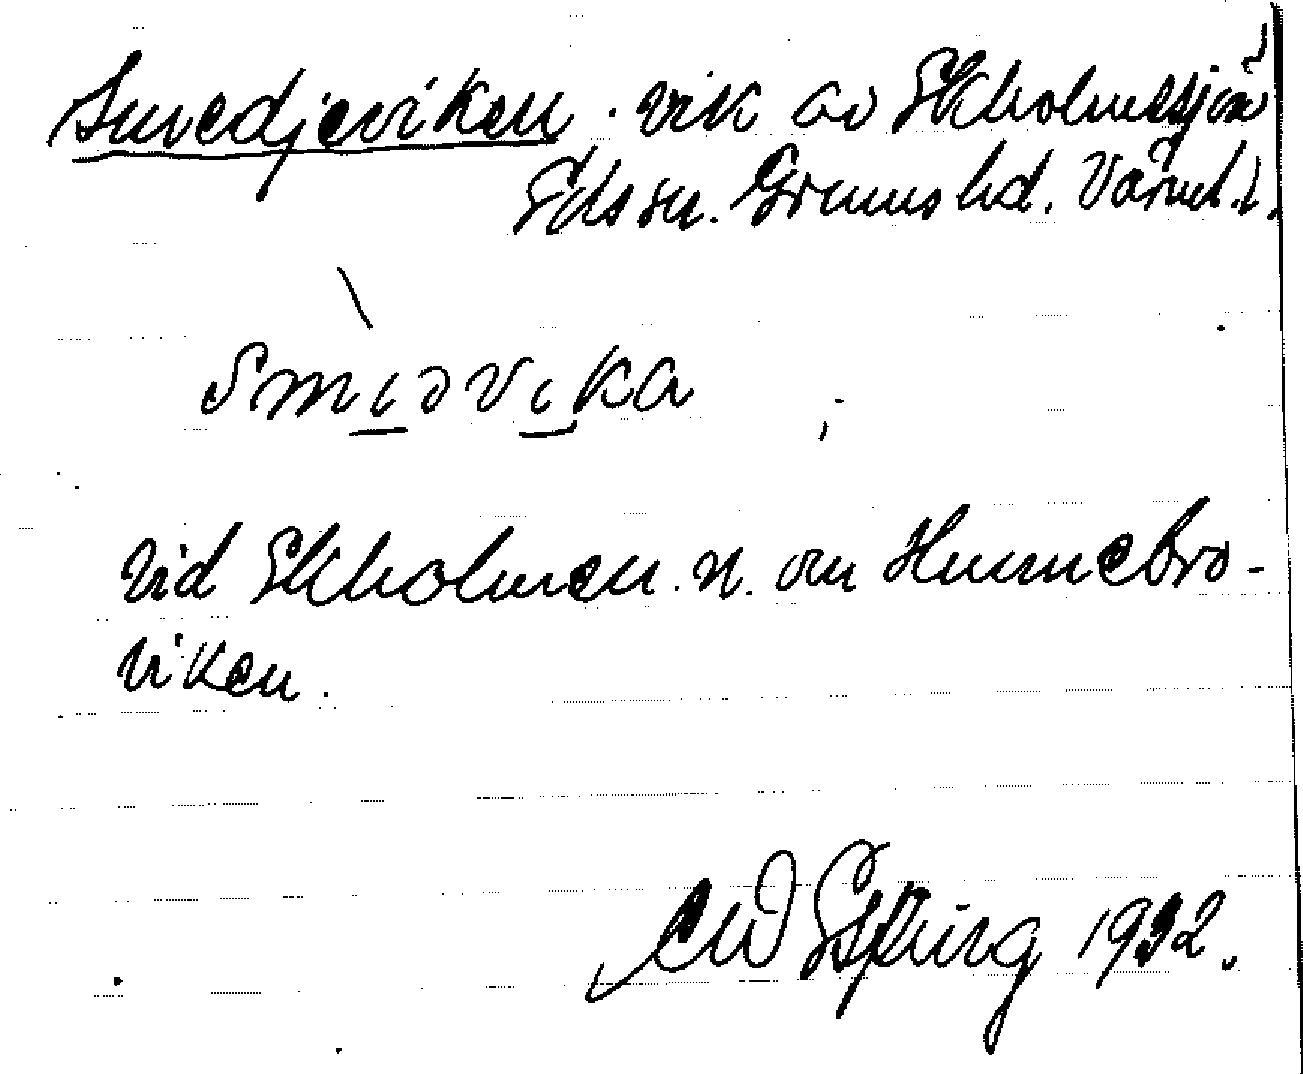 Smedjeviken. vik av Ekholmssjön
Eds sn. Grums hd. Värml. l.
Smiəvika
Vid Ekholmen. n. om Hunnebro-
viken.
1932.